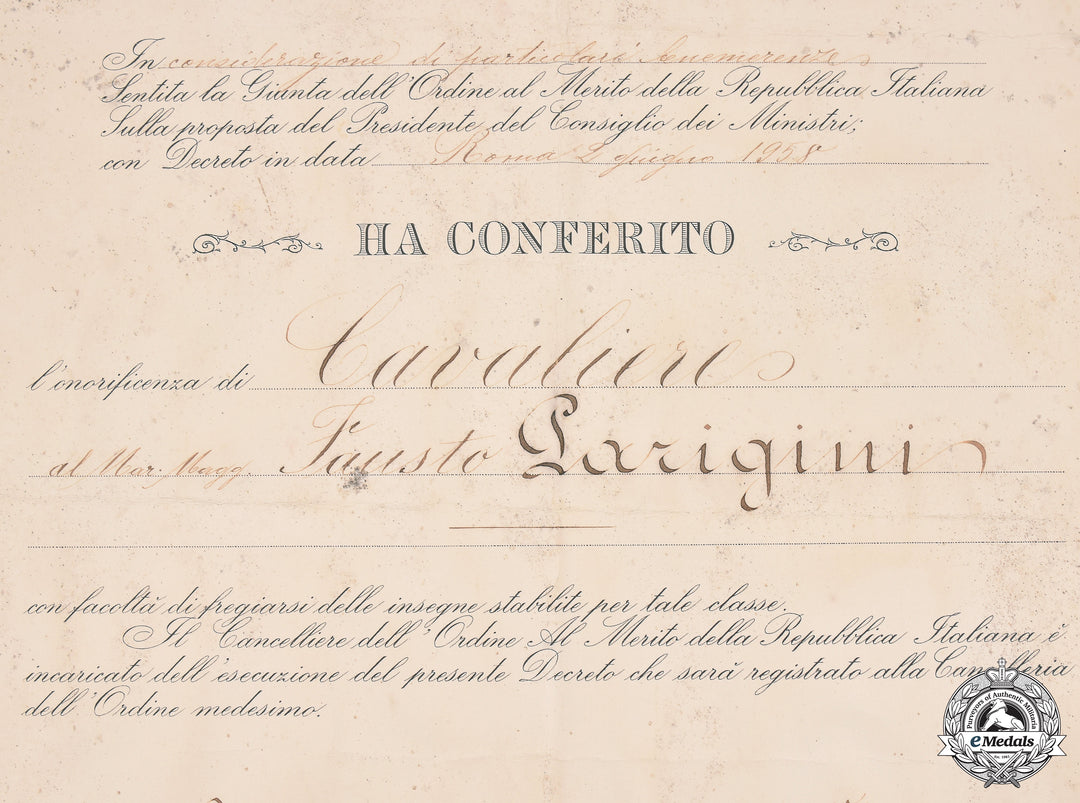 In considerazione di particolari benemerenze
Sentita la Giunta dell'Ordine al Merito della Repubblica Italiana
Sulla proposta del Presidente del Consiglio dei Ministri;
con Decreto in data Roma 2 giugno 1958
HA CONFERITO
l'onorificenza di Cavaliere
al Mar. Magg. Fausto Parigini
con facoltà di fregiarsi delle insegne stabilite per tale classe.
Il Cancelliere dell'Ordine Al Merito della Repubblica Italiana è
incaricato dell'esecuzione del presente Decreto che sarà registrato alla Cancelleria
dell'Ordine medesimo.
Purveyors of Authentic Militaria
eMedals